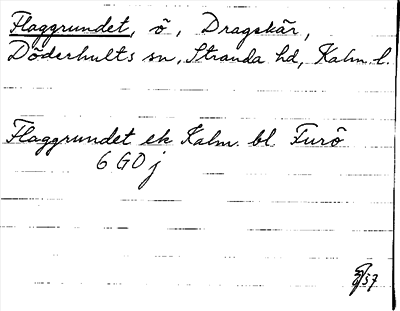 Flaggrundet, ö, Dragskär,
Döderhults sn, Stranda hd, Kalm. l.
Flaggrundet ek Kalm. bl. Furö
6 G0 j